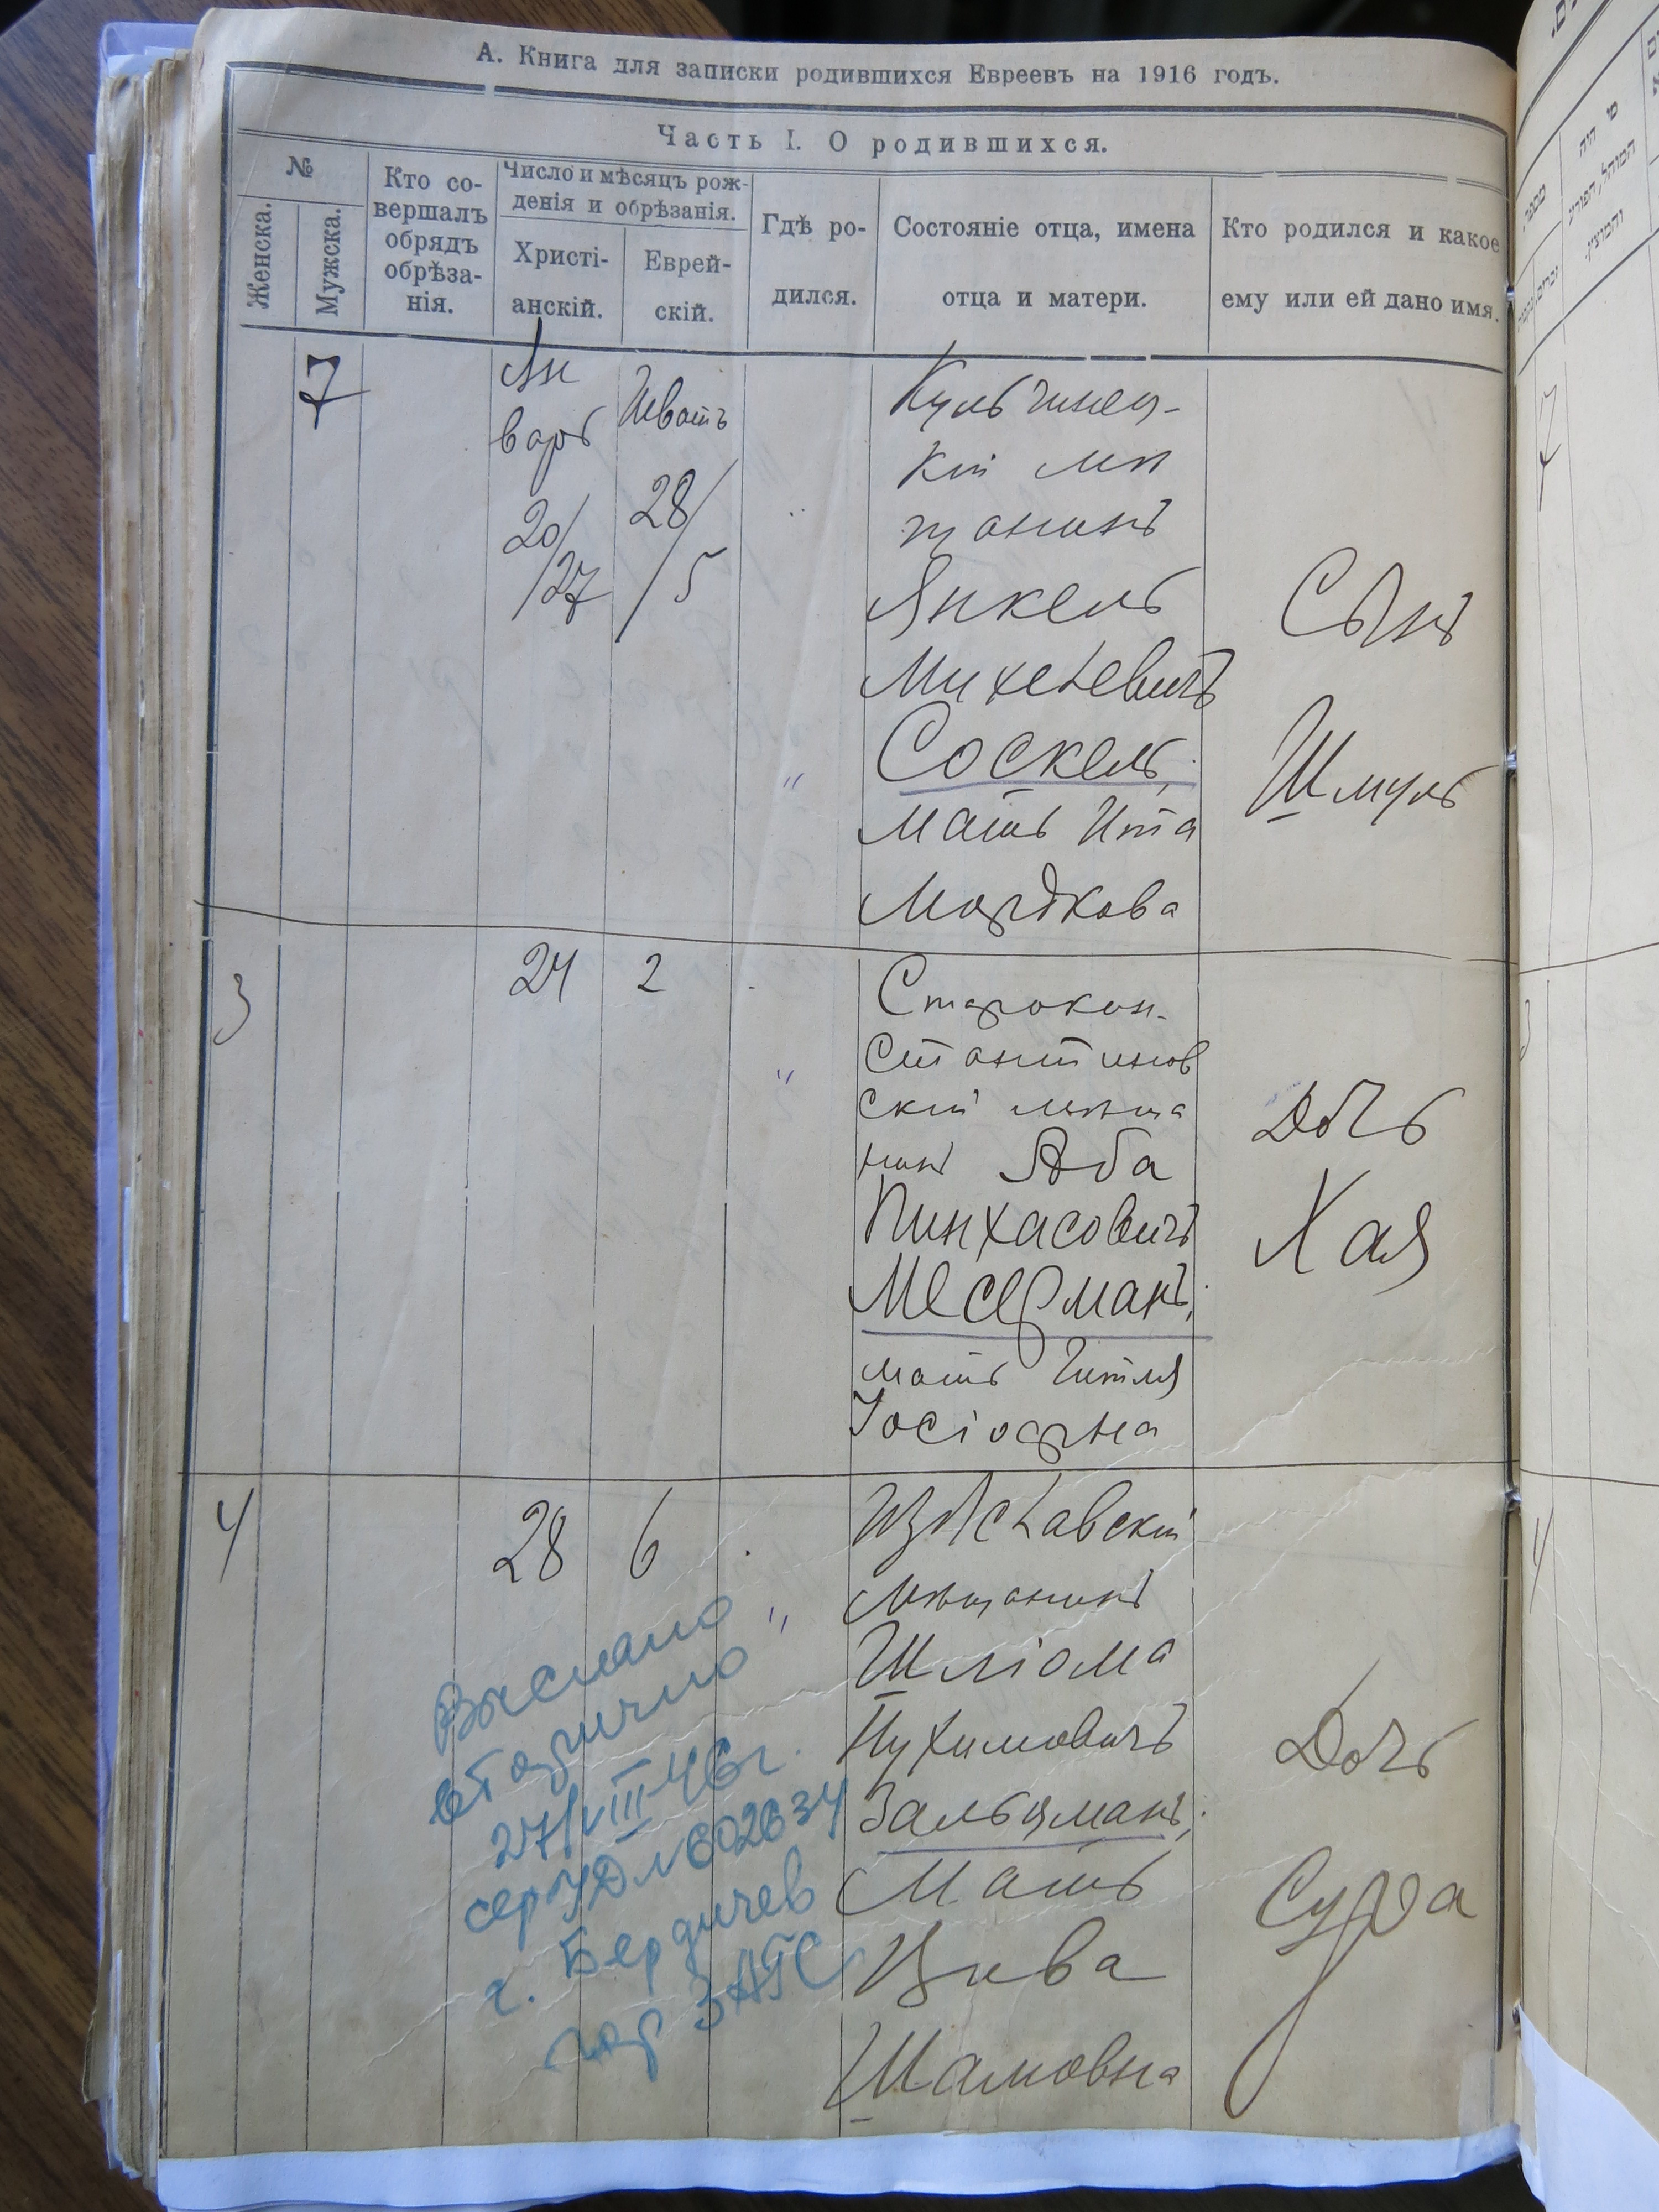 А. Книга для записки родившихся Евреевъ на 1916 годъ.
Часть I. О родившихся.
№
Женска.
Мужска.
Кто со-
вершалъ
обрядъ
обрѣза-
нія.
Число и мѣсяцъ рож-
денія и обрѣзанія.
Христі-
анскій.
Еврей-
скій.
Гдѣ ро-
дился.
Состояніе отца, имена
отца и матери.
Кто родился и какое
ему или ей дано имя.
7
Ян
варь
20/
/27
Шватъ
28/
/5
"
Кульчинс-
кій
щанинъ
Янкель
Михелевичъ
Соскель,
Мать Ита
Мордкова
Сынъ
Шмуль
3
24
2
"
Старокон-
стантинов
скій мѣща
нинъ Аба
Пинхасовичъ
Месерманъ,
мать Гитля
Іосіофна
Дочь
Хая
4
28
6
"
Изяславскій
мѣщанинъ
Шліома
Нухимовичъ
Зальцманъ,
Мать
Цива
Шамовна
Дочь
Сура
Выслано
вторично
27/VIII-46г.
сер УД № 602634
г. Бердичев
гор ЗАГС